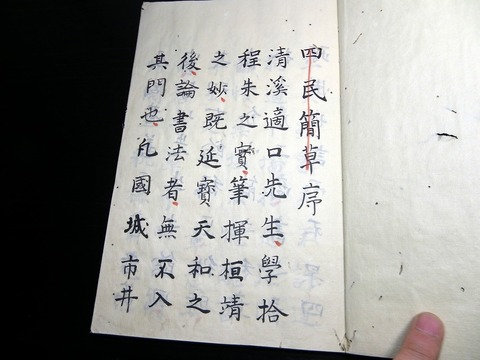 四民簡草序
清溪適口先生學拾
程朱之實筆揮桓靖
之妙既延寶天和之
後論書法者無不入
其門也凡國城市井